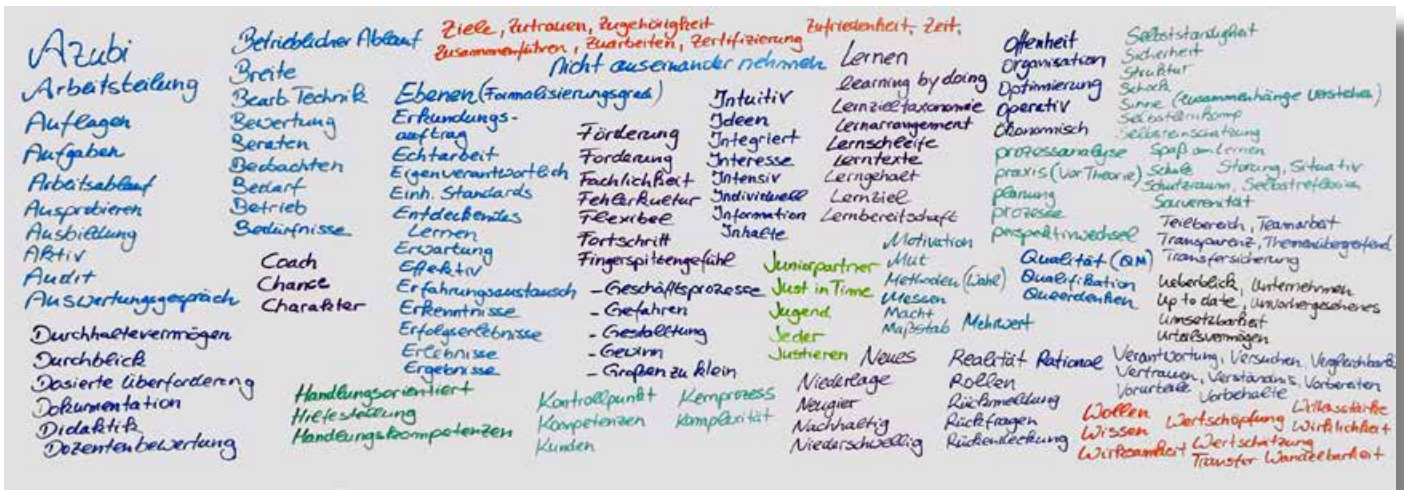 Azubi
Arbeitsteilung
Auflagen
Aufgaben
Arbeitsablauf
Ausprobieren
Ausbildung
Aktiv
Audit
Auswertungsgespräch
Betrieblicher Ablauf
Breite
Bearb. Technik
Bewertung
Beraten
Beobachten
Bedarf
Betrieb
Bedürfnisse
Coach
Chance
Charakter
Durchhaltevermögen
Durchblick
Dosierte Überforderung
Dokumentation
Didaktik
Dozentenbewertung
Ziele, Zutrauen, Zugehörigkeit Zufriedenheit, Zeit,
Zusammenführen, Zuarbeiten, Zertifizierung
Nicht auseinander nehmen
Ebenen (Formalisierungsgrad)
Erkundungs-
auftrag
Echtarbeit
Eigenverantwortlich
Einh. Standards
Entdeckendes
Lernen
Erwartung
Effektiv
Erfahrungsaustausch
Erkenntnisse
Erfolgserlebnisse
Erlebnisse
Ergebnisse
Förderung
Forderung
Fachlichkeit
Fehlerkultur
Flexibel
Fortschritt
Fingerspitzengefühl
- Geschäftsprozesse
- Gefahren
- Gestaltung
- Gewinn
- Großen zu klein
Handlungsorientiert
Hilfestellung
Handlungskompetenzen
Intuitiv
Ideen
Integriert
Interesse
Intensiv
Individuell
Information
Inhalte
Juniorpartner
Just in Time
Jugend
Jeder
Justieren
Kontrollpunkt Kernprozess
Kompetenzen Komplexität
Kunden
Lernen
learning by doing
Lernzieltaxonomie
Lernarrangement
Lernschleife
Lerntexte
Lerngehalt
Lernziel
Lernbereitschaft
Motivation
Mut
Methoden (Wahl)
Messen
Macht
Maßstab Mehrwert
Neues
Niederlage
Neugier
Nachhaltig
Niederschwellig
Offenheit
Organisation
Optimierung
Operativ
Ökonomisch
prozessanalyse
praxis (vor Theorie)
planung
prozesse
perspektivwechsel
Qualität (QM)
Qualifikation
Queerdenken
Realität Rational
Rollen
Rückmeldung
Rückfragen
Rückendeckung
Selbstständigkeit
Sicherheit
Struktur
Schock
Sinne (zusammenhänge verstehen)
Selbstlernkomp
Selbsteinschätzung
Spaß am Lernen
Schule Störung, Situativ
Schutzraum, Selbstreflexion
Souveränität
Teilbereich, Teamarbeit
Transparenz, Themenübergreifend
Transfersicherung
Ueberblick, Unternehmen
Up to date, Unvorhergesehenes
Umsetzbarkeit
Urteilsvermögen
Verantwortung, Versuchen,
Vertrauen, Verständnis, Vorbereiten
Vorurteile Vorbehalte
Wollen Wertschöpfung Willensstärke
Wissen Wirklichkeit
Wirksamkeit Wertschätzung
Transfer Wandelbarkeit